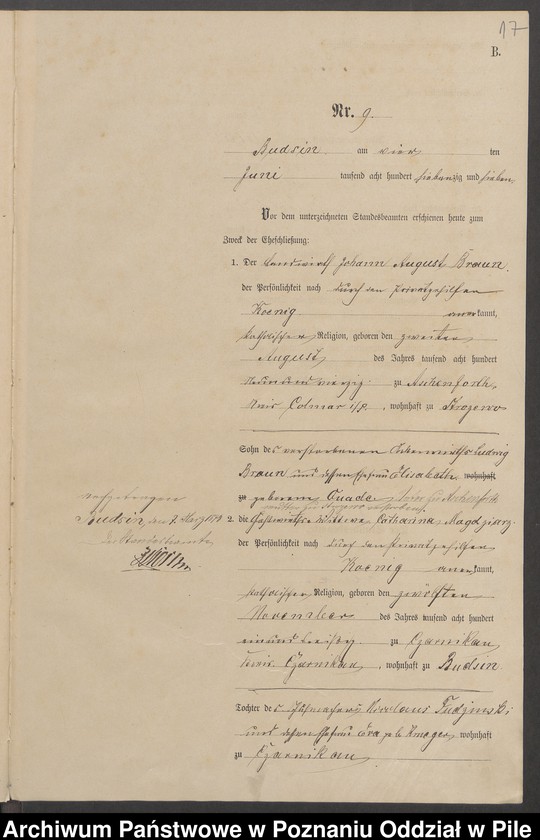 17
B.
Nr. 9.
Budsin am vier ten
Juni tausend acht hundert siebenzig und sieben
Vor dem unterzeichneten Standesbeamten erschienen heute zum
Zweck der Eheschließung:
1. Der Landwirth Johann August Braun
der Persönlichkeit nach durch den Privatgehilfen
Koenig anerkannt,
katholischer Religion, geboren den zweiten
August des Jahres tausend acht hundert
neun und vierzig zu Aschenforth
Kreis Colmar i/P., wohnhaft zu Strozewo
Sohn des verstorbenen Ackerwirths Ludwig
Braun und dessen Ehefrau Elisabeth wohnhaft
zu geborene Quade
2. die Gastwirths Wittwe Katharina Magdziarz
der Persönlichkeit nach durch den Privatgehilfen
Koenig anerkannt,
katholischer Religion, geboren den zwölften
November des Jahres tausend acht hundert
ein und dreißig zu Czarnikau
Kreis Czarnikau, wohnhaft zu Budsin
Tochter des Hutmachers Nicolaus Fudzinski
und dessen Ehefrau Eva geb. Kmager wohnhaft
zu Czarnikau
Budsin den 7. März 1879
Der Standesbeamte
Archiwum Państwowe w Poznaniu Oddział w Pile